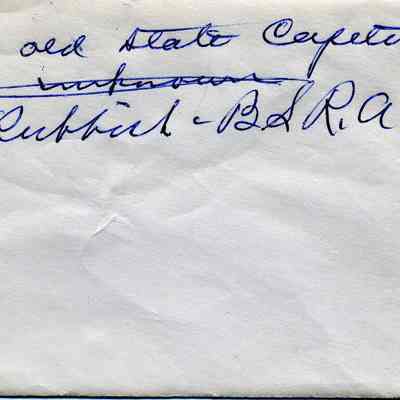 old State Capito
unknown
Rubbish - B S R. A